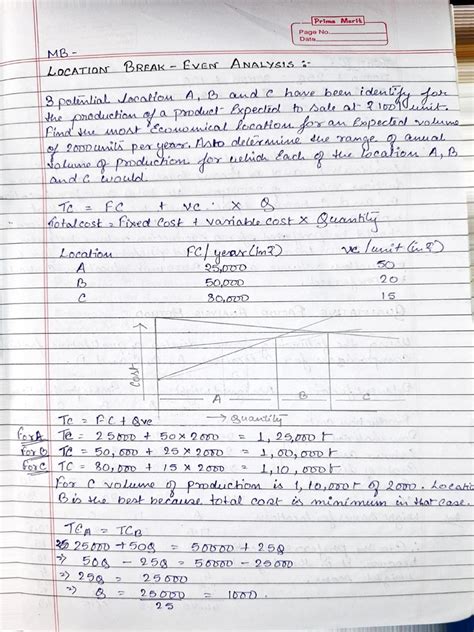 Prima Merit
Page No.
Date
MB -
LOCATION BREAK - EVEN ANALYSIS :-
3 potential location A, B and C have been identify for
the production of a product Expected to sale at ₹100/unit.
Find the most Economical location for an Expected volume
of 2000 units per year. Also determine the range of anual
volume of production for which Each of the location A, B
and C would.
TC = FC + VC × Q
Total cost = Fixed Cost + variable cost × Quantity
Location FC/year (in ₹) VC/unit (in ₹)
A 25,000 50
B 50,000 20
C 80,000 15
Cost
A B C
→ Quantity
TC = FC + Qvc
For A TC = 25000 + 50×2000 = 1,25,000
For B TC = 50,000 + 25×2000 = 1,00,000
For C TC = 80,000 + 15×2000 = 1,10,000
For C volume of production is 1,10,000 of 2000. Locati
B is the best because total cost is minimum in that case.
TCA = TCB
25000 + 50Q = 50000 + 25Q
⇒ 50Q - 25Q = 50000 - 25000
⇒ 25Q = 25000
⇒ Q = 25000 = 1000.
25